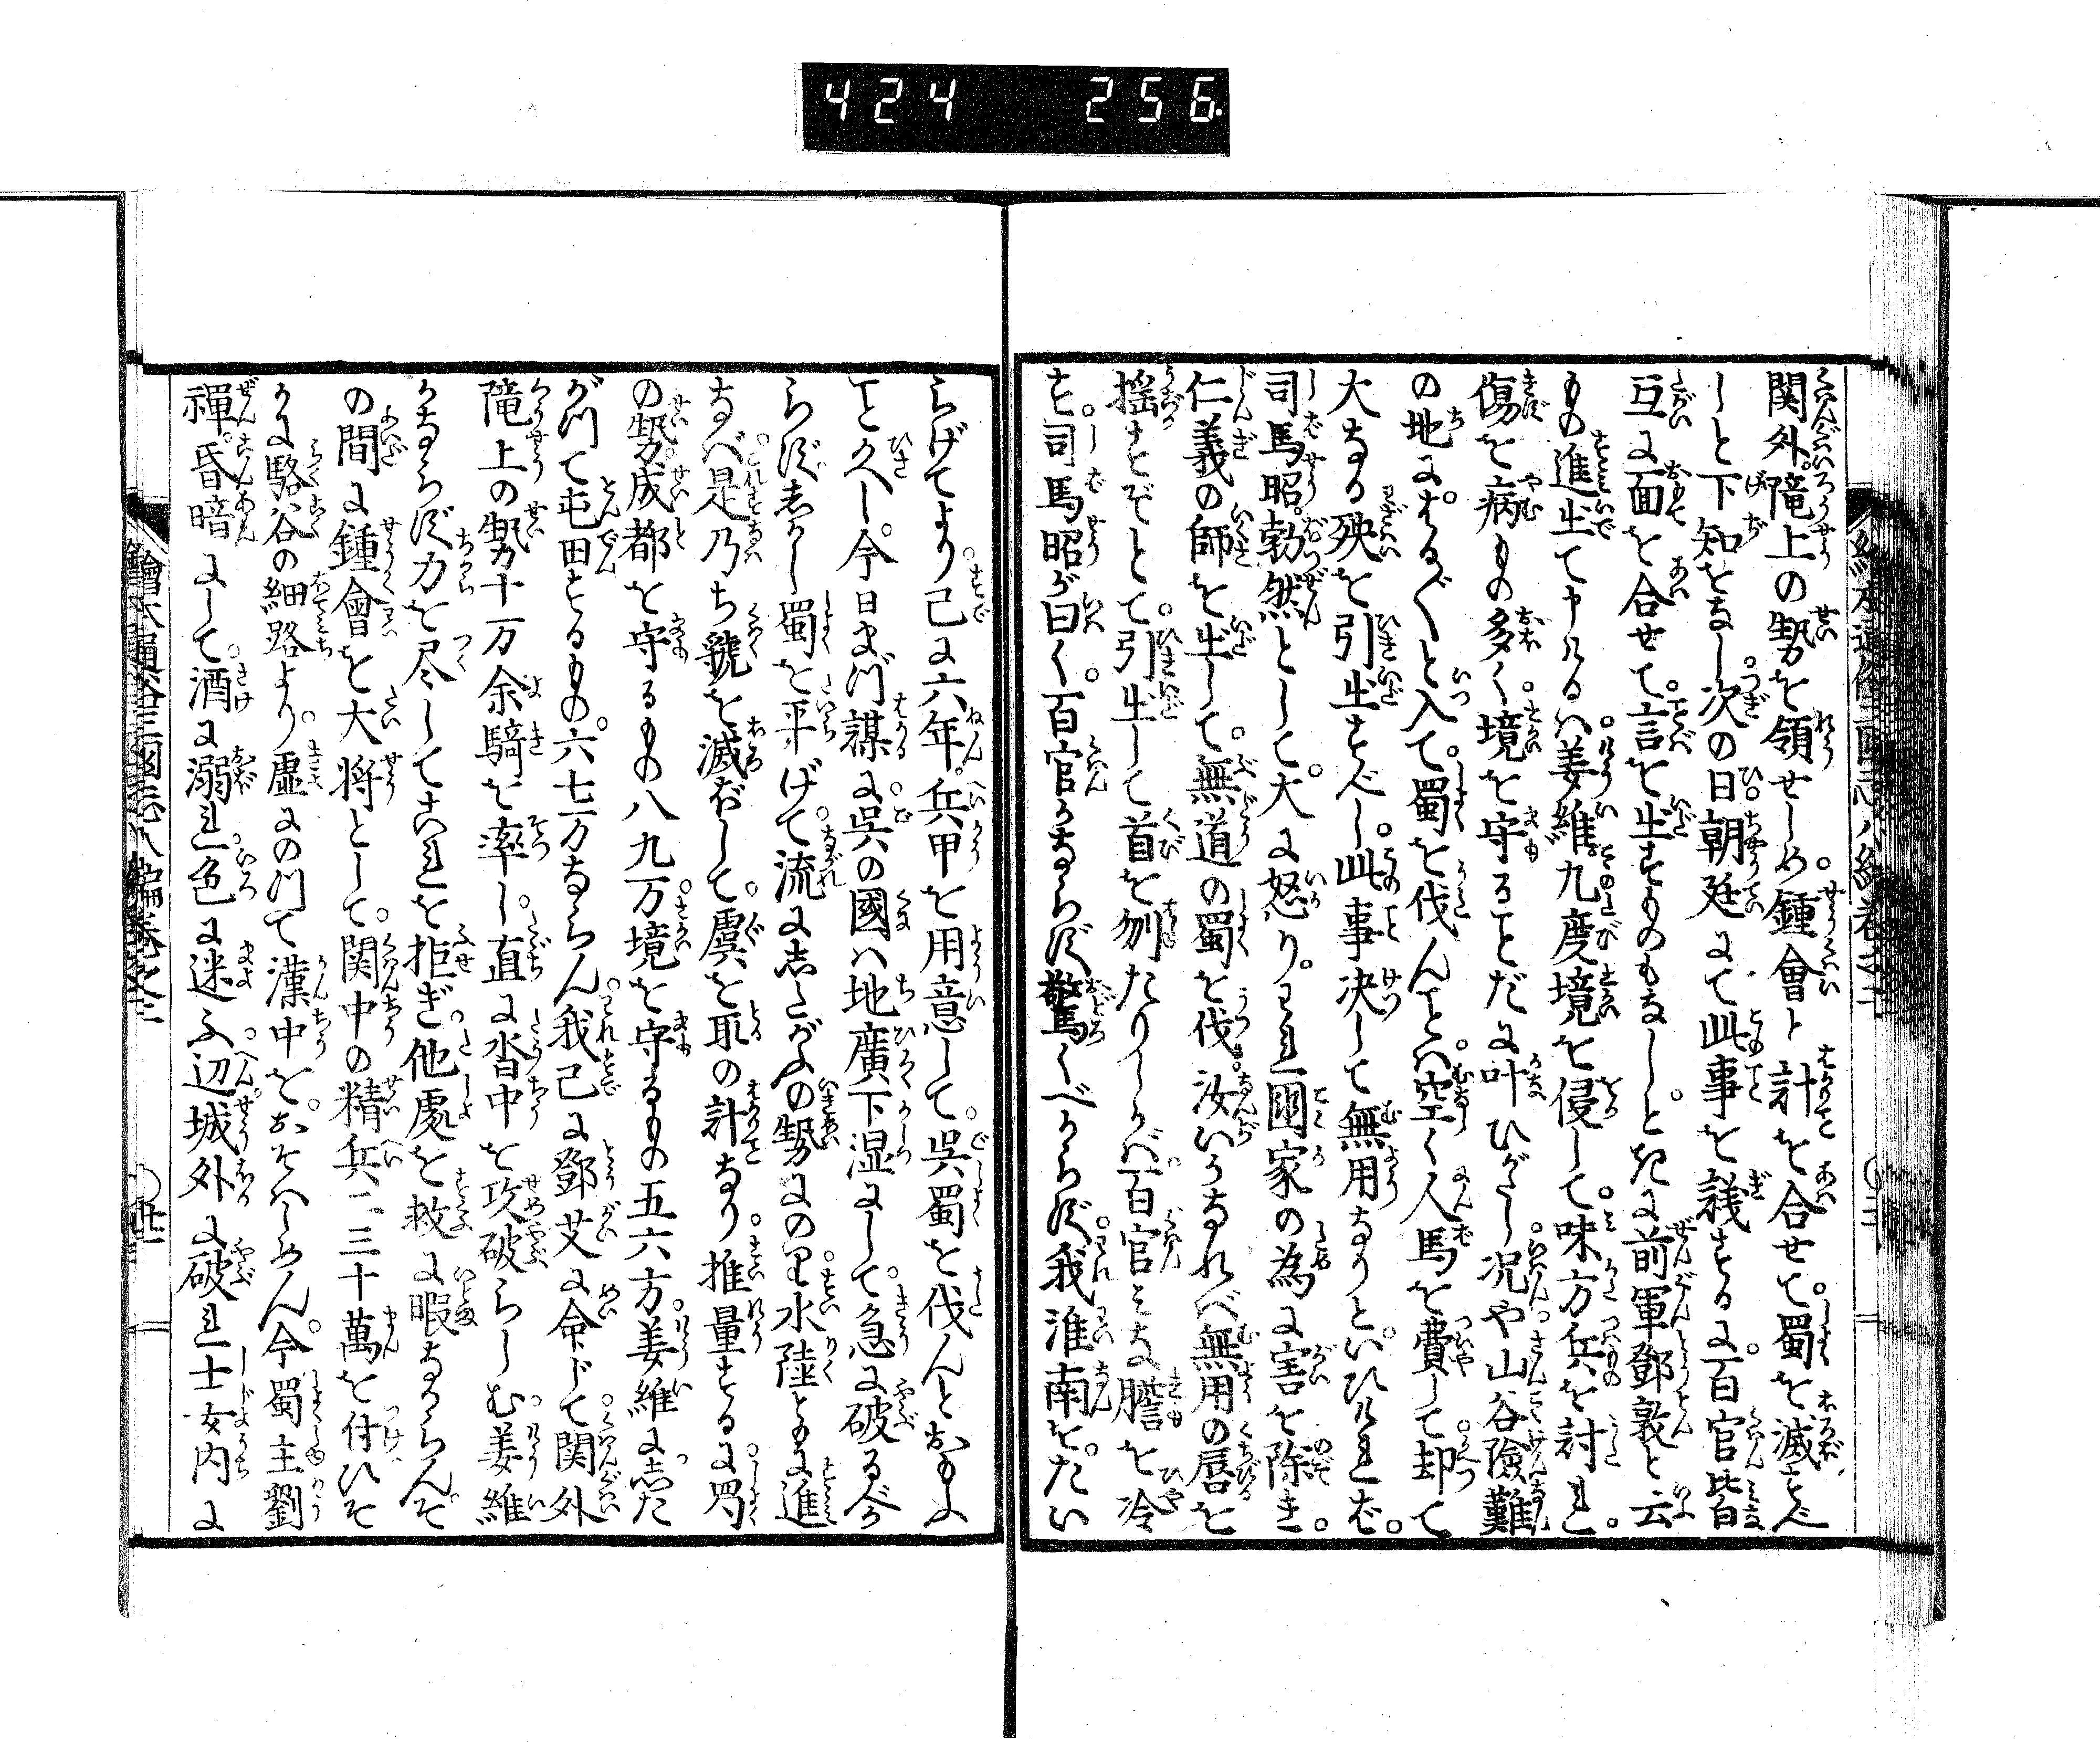 424 256
関外隴上の勢を領せしめ鍾會ト計を合せて蜀を滅すべ
しと下知をなし次の日朝廷にて此事を議するに百官皆
互に面を合せて言を出すものもなしときに前軍鄧敦と云
もの進出て申けるハ姜維九度境を侵して味方兵を討れ
傷を病もの多く境を守ることだに叶ひがたし況や山谷險難
の地にはる〲と入て蜀を伐んことハ空く人馬を費して却て
大なる殃を引出すべし此事決して無用なりといひければ
司馬昭勃然として大に怒りわれ國家の為に害を除き
仁義の師を出して無道の蜀を伐汝いかなれば無用の唇を
揺すぞとて引出して首を刎たりしかば百官みな膽を冷
す司馬昭が曰く百官かならず驚くべからず我淮南をたい
らげてより己に六年兵甲を用意して呉蜀を伐んとおもふ
こと久し今日まづ謀に呉の國ハ地廣下湿にして急に破るべか
らずしかし蜀を平げて流にしたがふの勢にのり水陸ともに進
なば是乃ち虢を滅ぼして虞を取の計なり推量するに蜀
の勢成都を守るもの八九万境を守るもの五六万姜維にした
がつて屯田するもの六七万ならん我己に鄧艾に命じて関外
隴上の勢十万余騎を率し直に沓中を攻破らしむ姜維
かならず力を尽してこれを拒ぎ他處を救に暇なからんそ
の間に鍾會を大将として関中の精兵二三十萬を付けひそ
かに駱谷の細路より虚にのつて漢中をおそハしめん今蜀主劉
禅昏暗にして酒に溺れ色に迷ふ辺城外に破れ士女内に
繪本通俗三國志八編巻之二